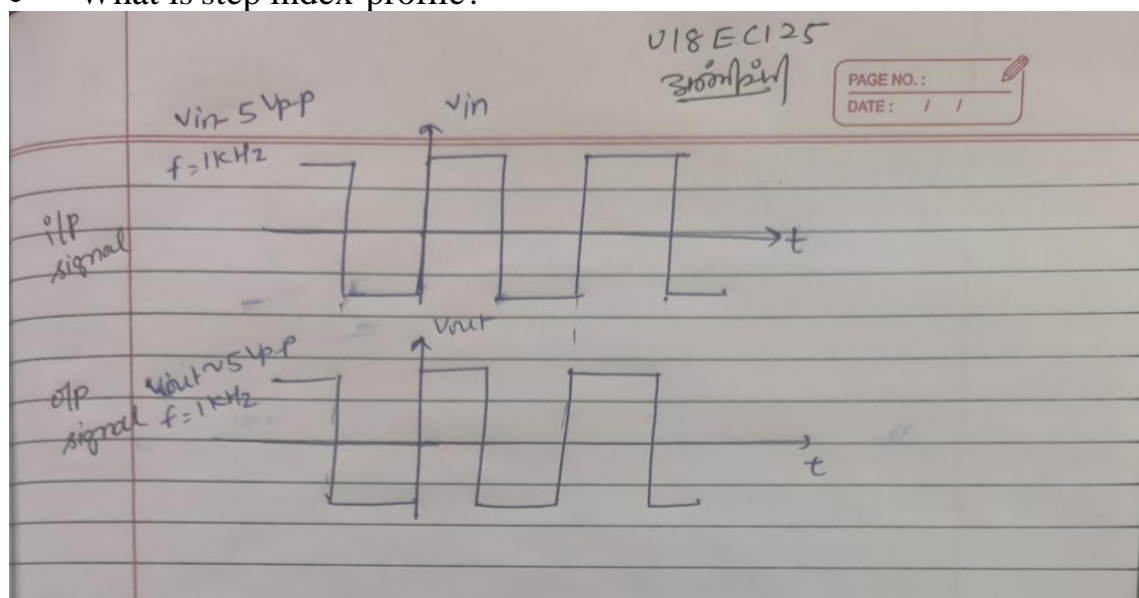 What is step index profile?
U18EC125
PAGE NO. :
DATE : / /
Vin- 5 Vp-p
Vin
f=1KHz
i/p
signal
t
Vout
Vout ~ 5 Vp-p
o/p
f=1KHz
signal
t